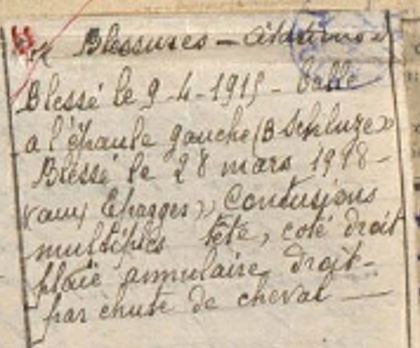 Blessures - Citations
Blessé le 9-4-1915 - balle
a l'épaule gauche (B Schluze »
Blessé le 28 mars 1918 -
« aux Eparges », Contusions
multiples tête, coté droit
plaie annulaire droit -
par chute de cheval —